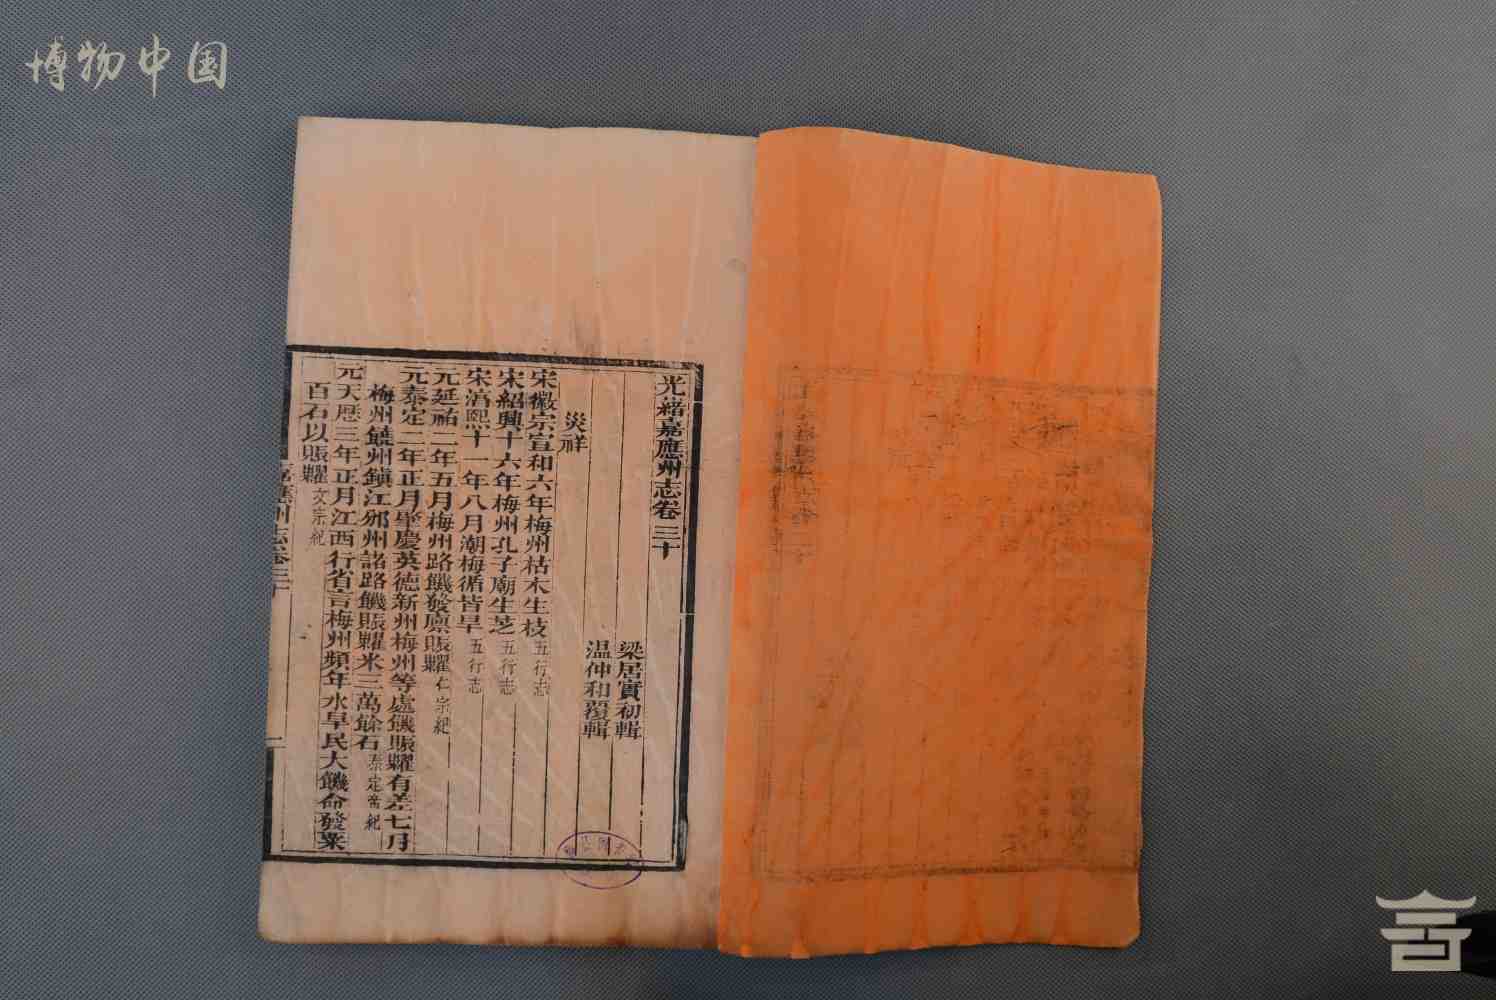 博物中国
光緒嘉應州志卷三十
梁居實初輯
温仲和覆輯
災祥
宋徽宗宣和六年梅州枯木生枝五行志
宋紹興十六年梅州孔子廟生芝五行志
宋湻熙十一年八月潮梅循皆旱五行志
元延祐二年五月梅州路饑發廩賑糶仁宗紀
元泰定二年正月肇慶英德新州梅州等處饑賑糶有差七月
梅州饒州鎮江邠州諸路饑賑糶米三萬餘石泰定帝紀
元天歷三年正月江西行省言梅州頻年水旱民大饑命發粟
百石以賑糶文宗紀
嘉應州志卷三十
一